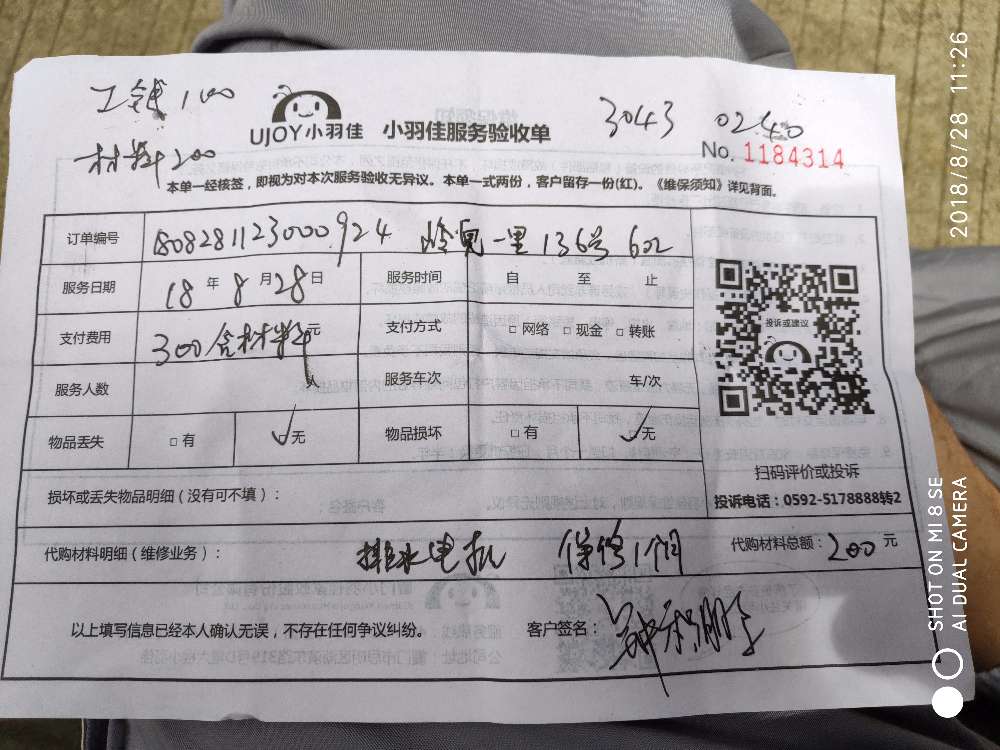 工钱100
材料200
UJOY小羽佳 小羽佳服务验收单
3043 0240
No. 1184314
本单一经核签，即视为对本次服务验收无异议。本单一式两份，客户留存一份(红)。《维保须知》详见背面。
订单编号 180828112300924 一里136号602
服务日期 18 年 8 月 28 日 服务时间 自 至 止
支付费用 300含材料 元 支付方式 □ 网络 □ 现金 □ 转账
服务人数 人 服务车次 车/次
物品丢失 □ 有 ✓无 物品损坏 □ 有 ✓无
投诉或建议
扫码评价或投诉
投诉电话：0592-5178888转2
损坏或丢失物品明细（没有可不填）：
代购材料明细（维修业务）： 排水电机 保修1个月 代购材料总额：200 元
以上填写信息已经本人确认无误，不存在任何争议纠纷。 客户签名：
2018/8/28 11:26
SHOT ON MI 8 SE
AI DUAL CAMERA